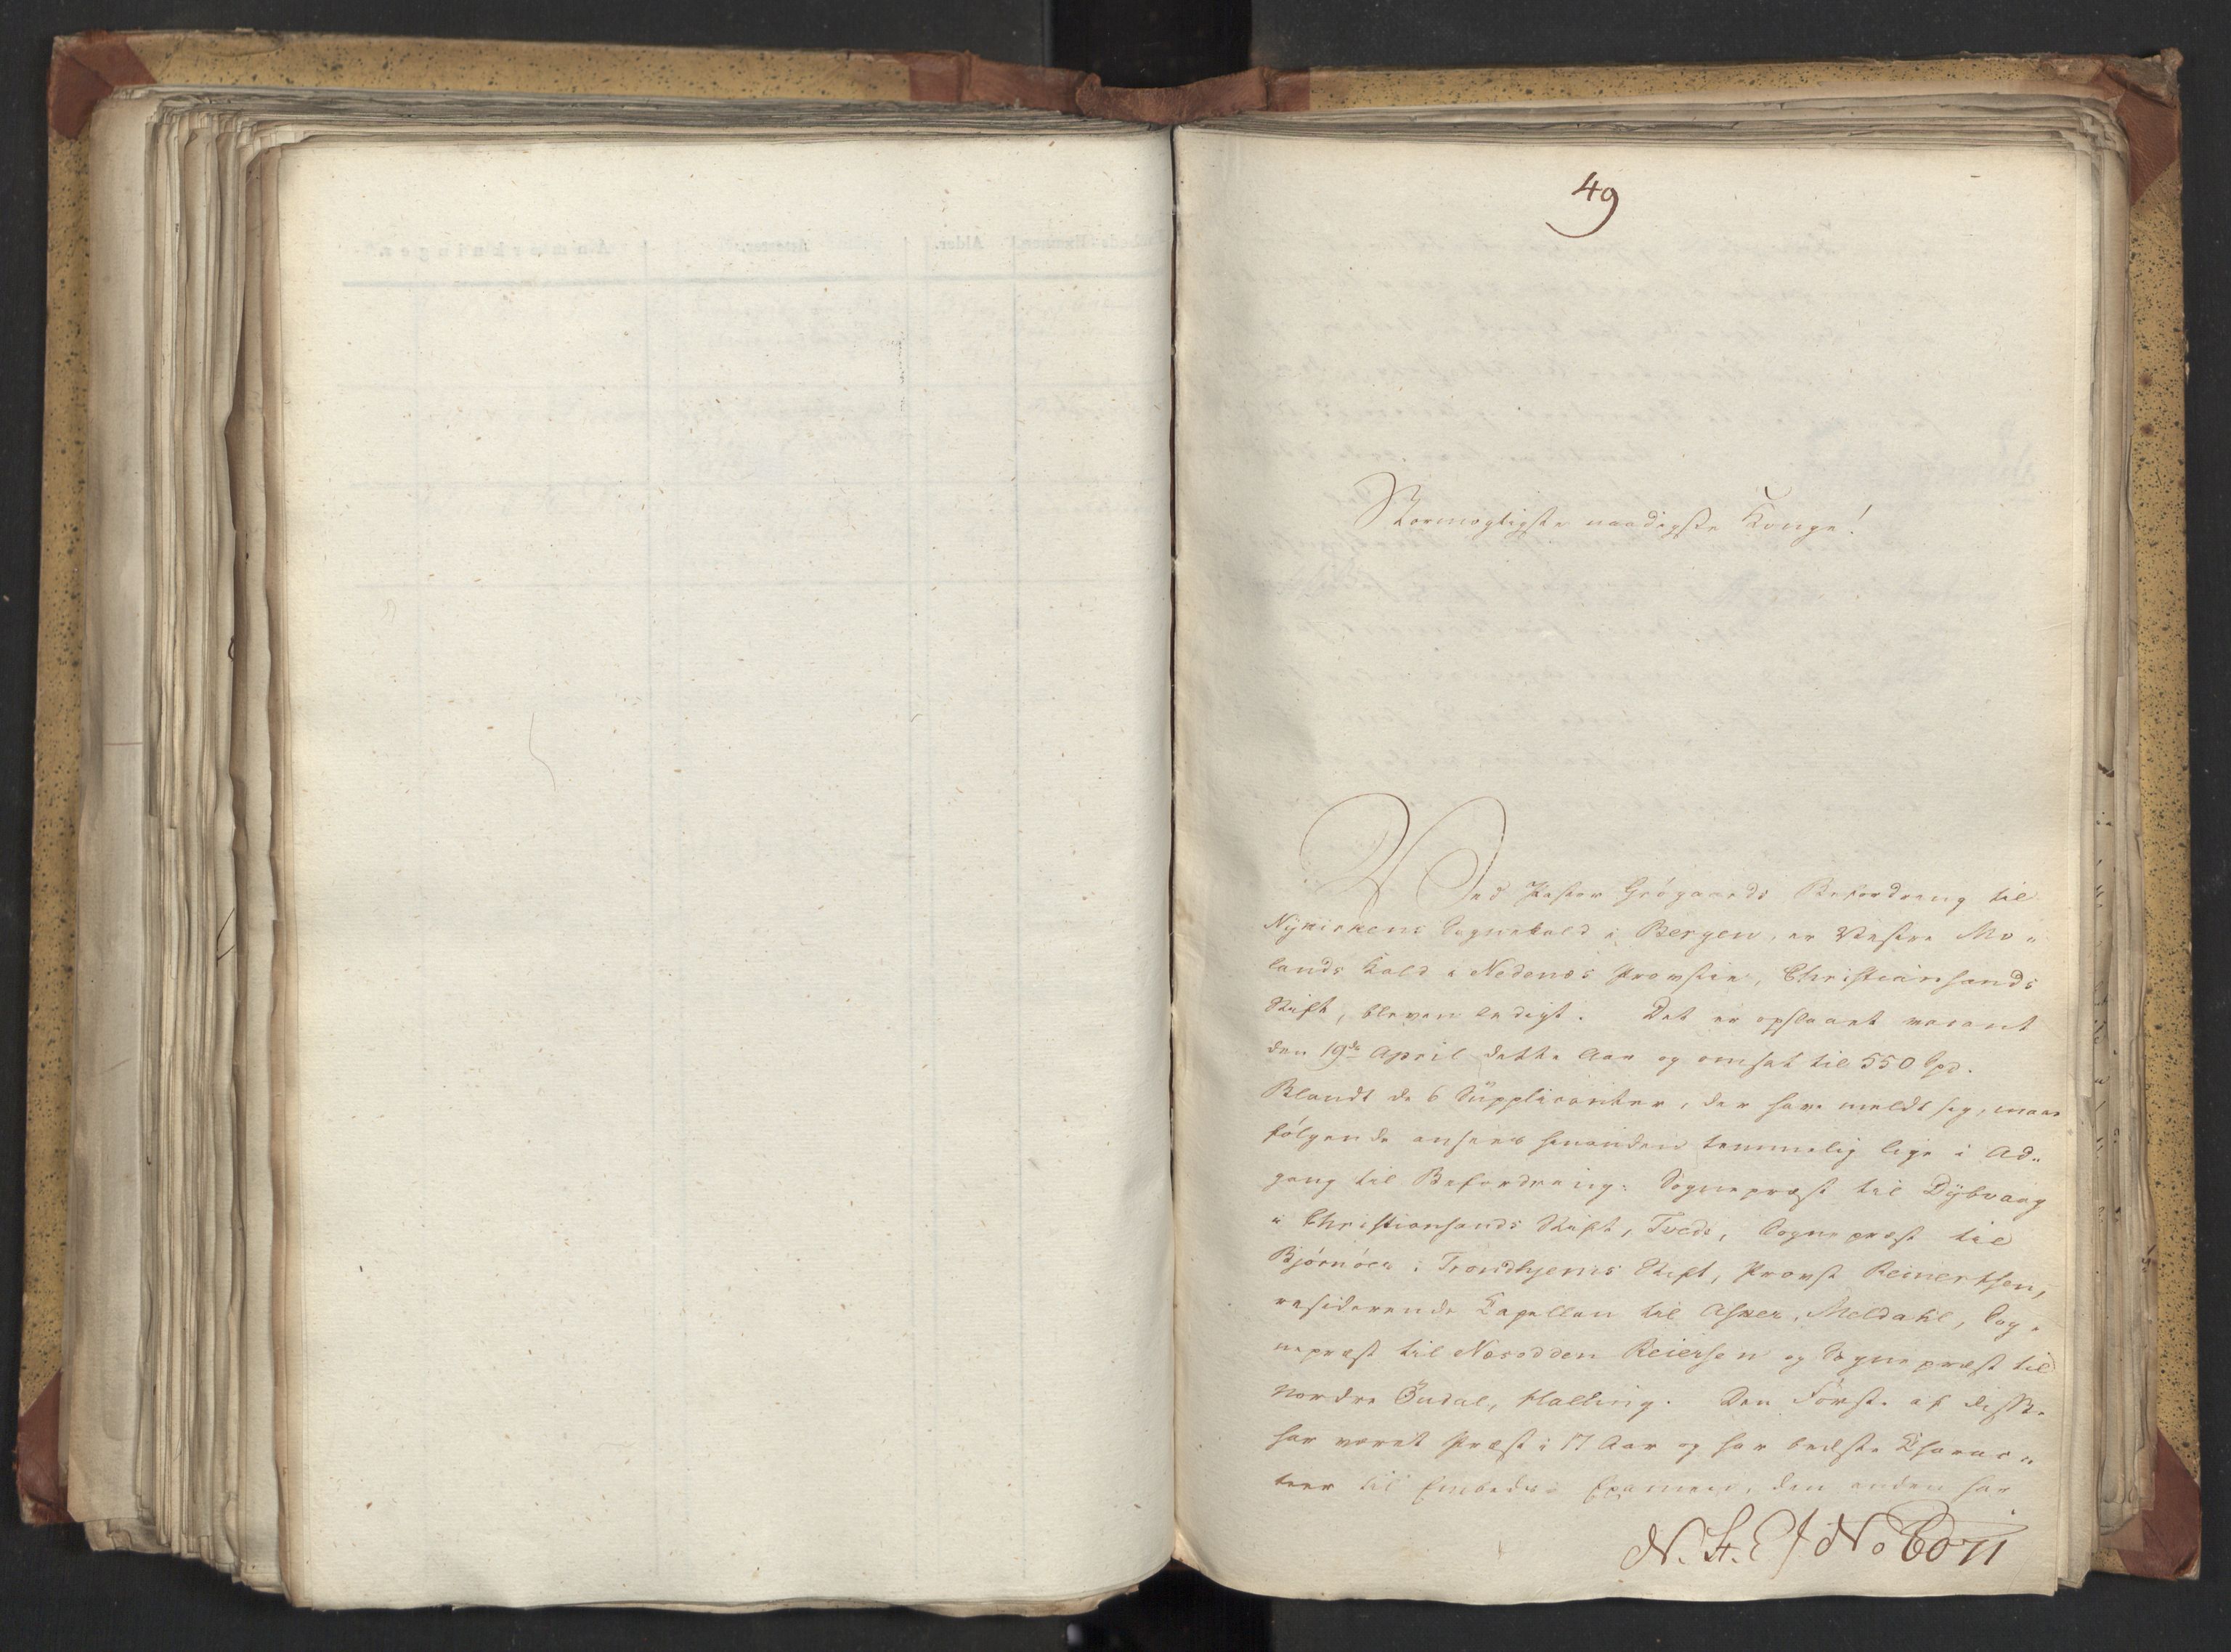 49
Stormægtigste naadigste Konge!
Ved Pastor Grögaards Befordring til
Nykirkens Sognekald i Bergen, er Vestre Mo„
lands Kald i Nedenæs Provstie, Christiansands
Stift, bleven ledigt. Det er opslaaet vacant
den 19de April dette Aar og omsat til 550 Spd.
Blandt de 6 Supplicanter, der have meldt sig, maae
fölgende ansees hinanden temmelig lige i Ad„
gang til Befordring: Sognepræst til Dybvaag
i Christiansands Stift, Tvede, Sognepræst til
Bjørnöer i Trondhjems Stift, Provst Reinertsen,
residerende Capellan til Asker, Meldahl, Sog„
nepræst til Næsodden Reiersen og Sognepræst til
Nordre Öudal, Halling. Den Förste af disse
har været Præst i 17 Aar og har bedste Charac„
teer til Embeds Examen, den anden har